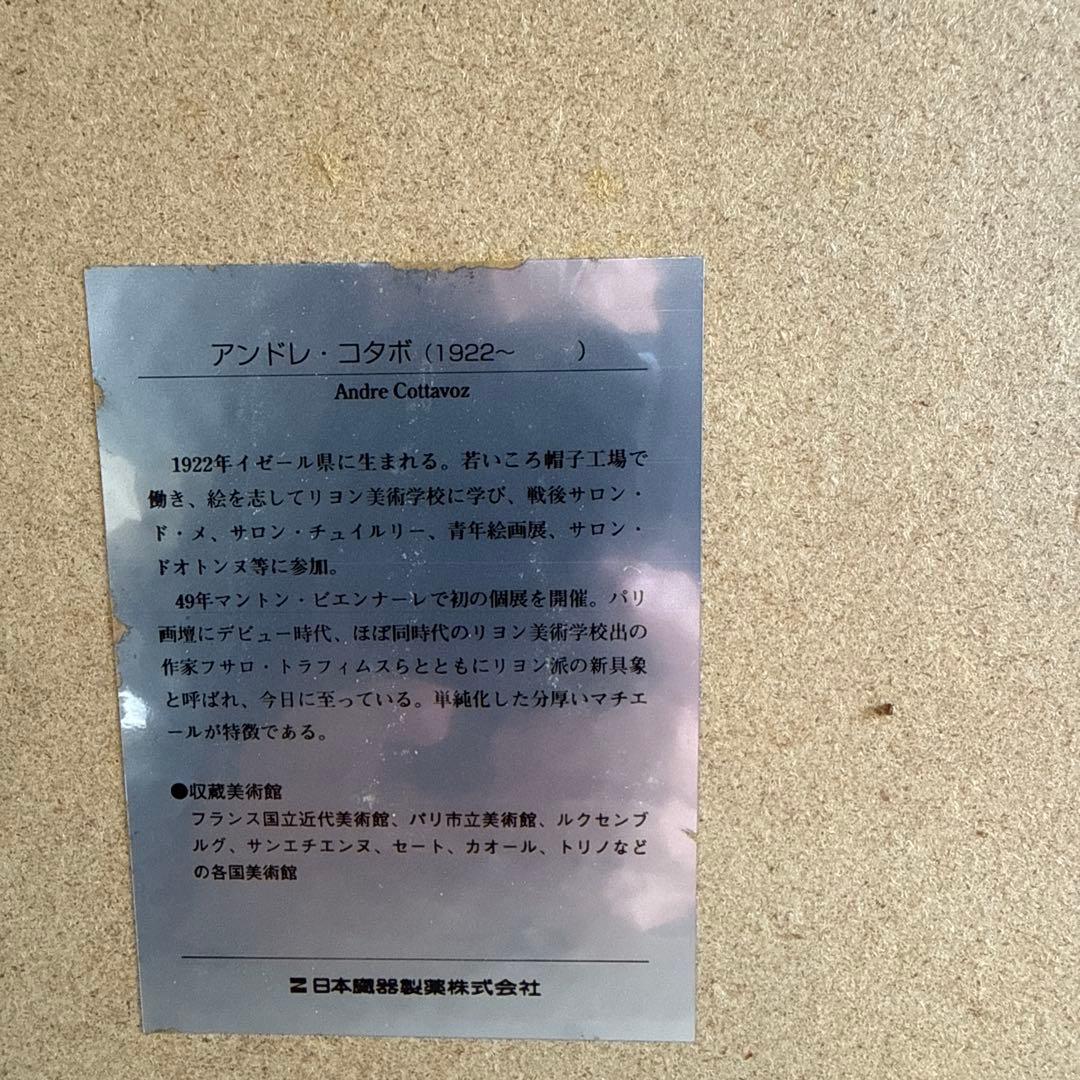 アンドレ・コタボ（1922～　　　）
Andre Cottavoz
1922年イゼール県に生まれる。若いころ帽子工場で
働き、絵を志してリヨン美術学校に学び、戦後サロン・
ド・メ、サロン・チュイルリー、青年絵画展、サロン・
ドオトンヌ等に参加。
49年マントン・ビエンナーレで初の個展を開催。パリ
画壇にデビュー時代、ほぼ同時代のリヨン美術学校出の
作家フサロ・トラフィムスらとともにリヨン派の新具象
と呼ばれ、今日に至っている。単純化した分厚いマチエ
ールが特徴である。
●収蔵美術館
フランス国立近代美術館、パリ市立美術館、ルクセンブ
ルグ、サンエチエンヌ、セート、カオール、トリノなど
の各国美術館
日本臓器製薬株式会社